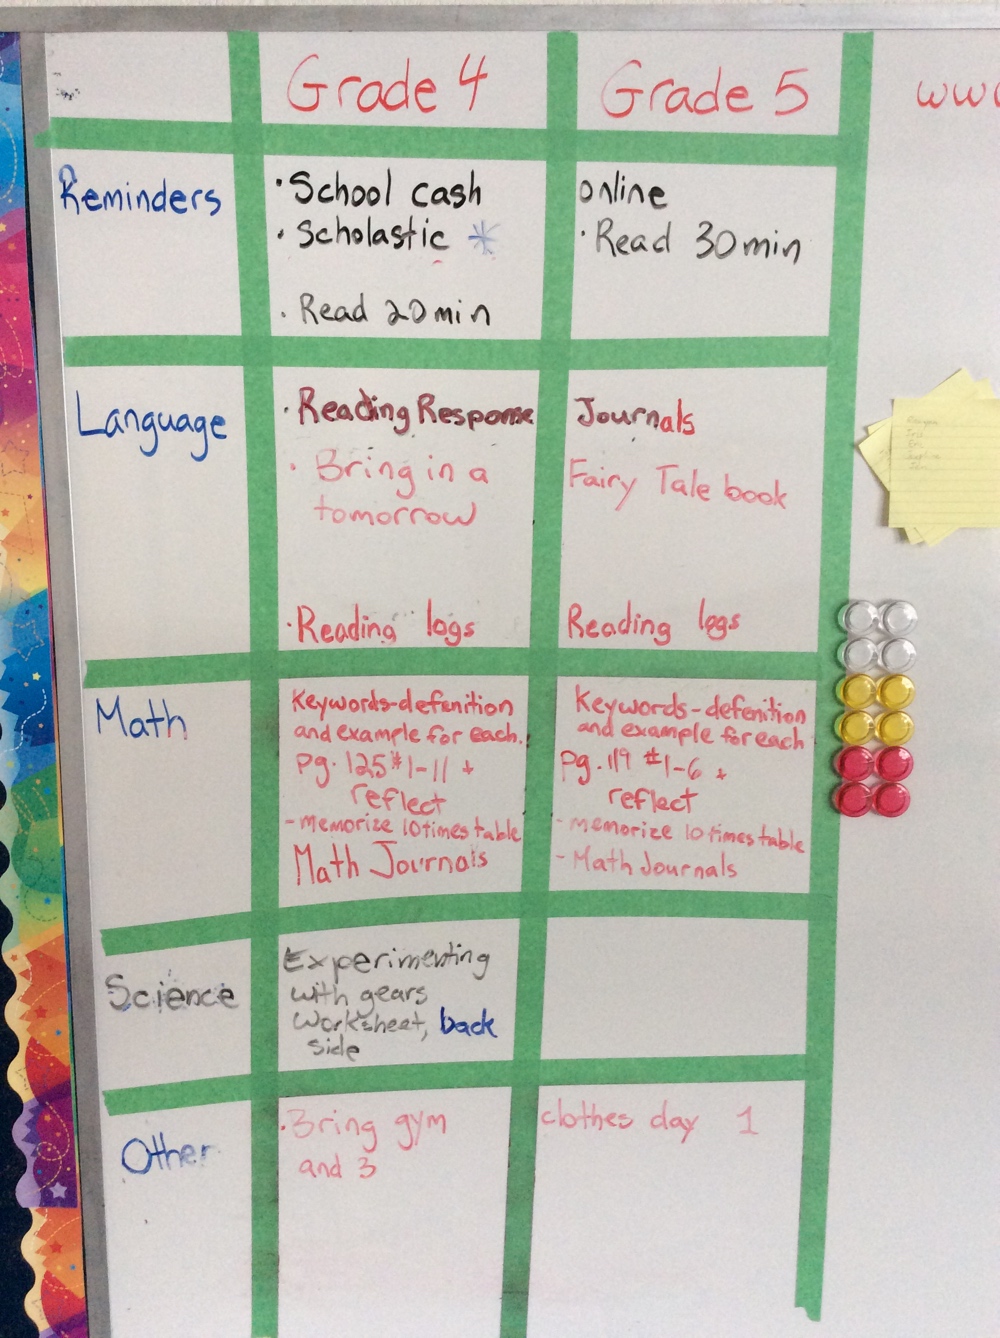 Grade 4 Grade 5
Reminders
· School cash online
· Scholastic
· Read 30 min
· Read 20 min
Language
· Reading Response Journals
· Bring in a Fairy Tale book
tomorrow
· Reading logs Reading logs
Math
Keywords-defenition
and example for each.
pg. 125 #1-11 +
reflect
- memorize 10 times table
Math Journals
Keywords-defenition
and example for each
pg. 119 #1-6 +
reflect
- memorize 10 times table
- Math Journals
Science
Experimenting
with gears
worksheet, back
side
Other
· Bring gym clothes day 1
and 3